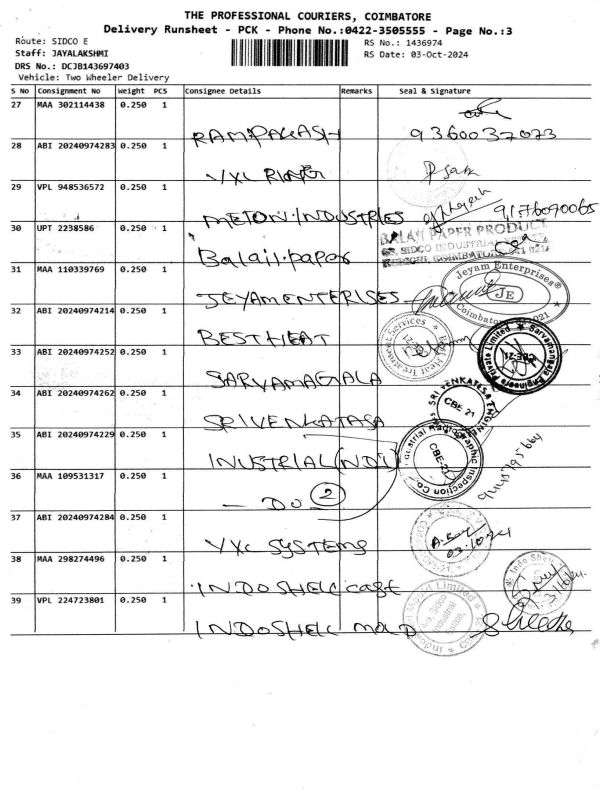 THE PROFESSIONAL COURIERS, COIMBATORE
Delivery Runsheet - PCK - Phone No.:0422-3505555 - Page No.:3
Route: SIDCO E
RS No.: 1436974
Staff: JAYALAKSHMI
RS Date: 03-Oct-2024
DRS No.: DCJB143697403
Vehicle: Two Wheeler Delivery
S No Consignment No Weight PCS Consignee Details Remarks Seal & Signature
27 MAA 302114438 0.250 1
RAMPRAKASH 9360037073
28 ABI 20240974283 0.250 1
VXL RING
29 VPL 948536572 0.250 1
METON INDUSTRIES 9176090065
30 UPT 2238586 0.250 1
BALAJI PAPER PRODUCT
SIDCO INDUSTRIAL
COIMBATORE
Balaji.paper
31 MAA 110339769 0.250 1
Jeyam Enterprises
JE
Coimbatore 641021
JEYAMENTERISES
32 ABI 20240974214 0.250 1
Best Heat Treatment Services
BESTHEAT
33 ABI 20240974252 0.250 1
Sarvamangala Engineers Private Limited
CBE-21
SARVAMAGALA
34 ABI 20240974262 0.250 1
SRI VENKATESA ENGIN
CBE 21
SRIVENKATASA
35 ABI 20240974229 0.250 1
Industrial Radiographic Inspection Co.
CBE-21
INUSTRIAL (NDI)
36 MAA 109531317 0.250 1
- DO - 2
37 ABI 20240974284 0.250 1
VXL SYSTEMS
03.10.24
38 MAA 298274496 0.250 1
Indo She
INDOSHELL cast
39 VPL 224723801 0.250 1
Indoshell Mould Limited
INDOSHELL mold